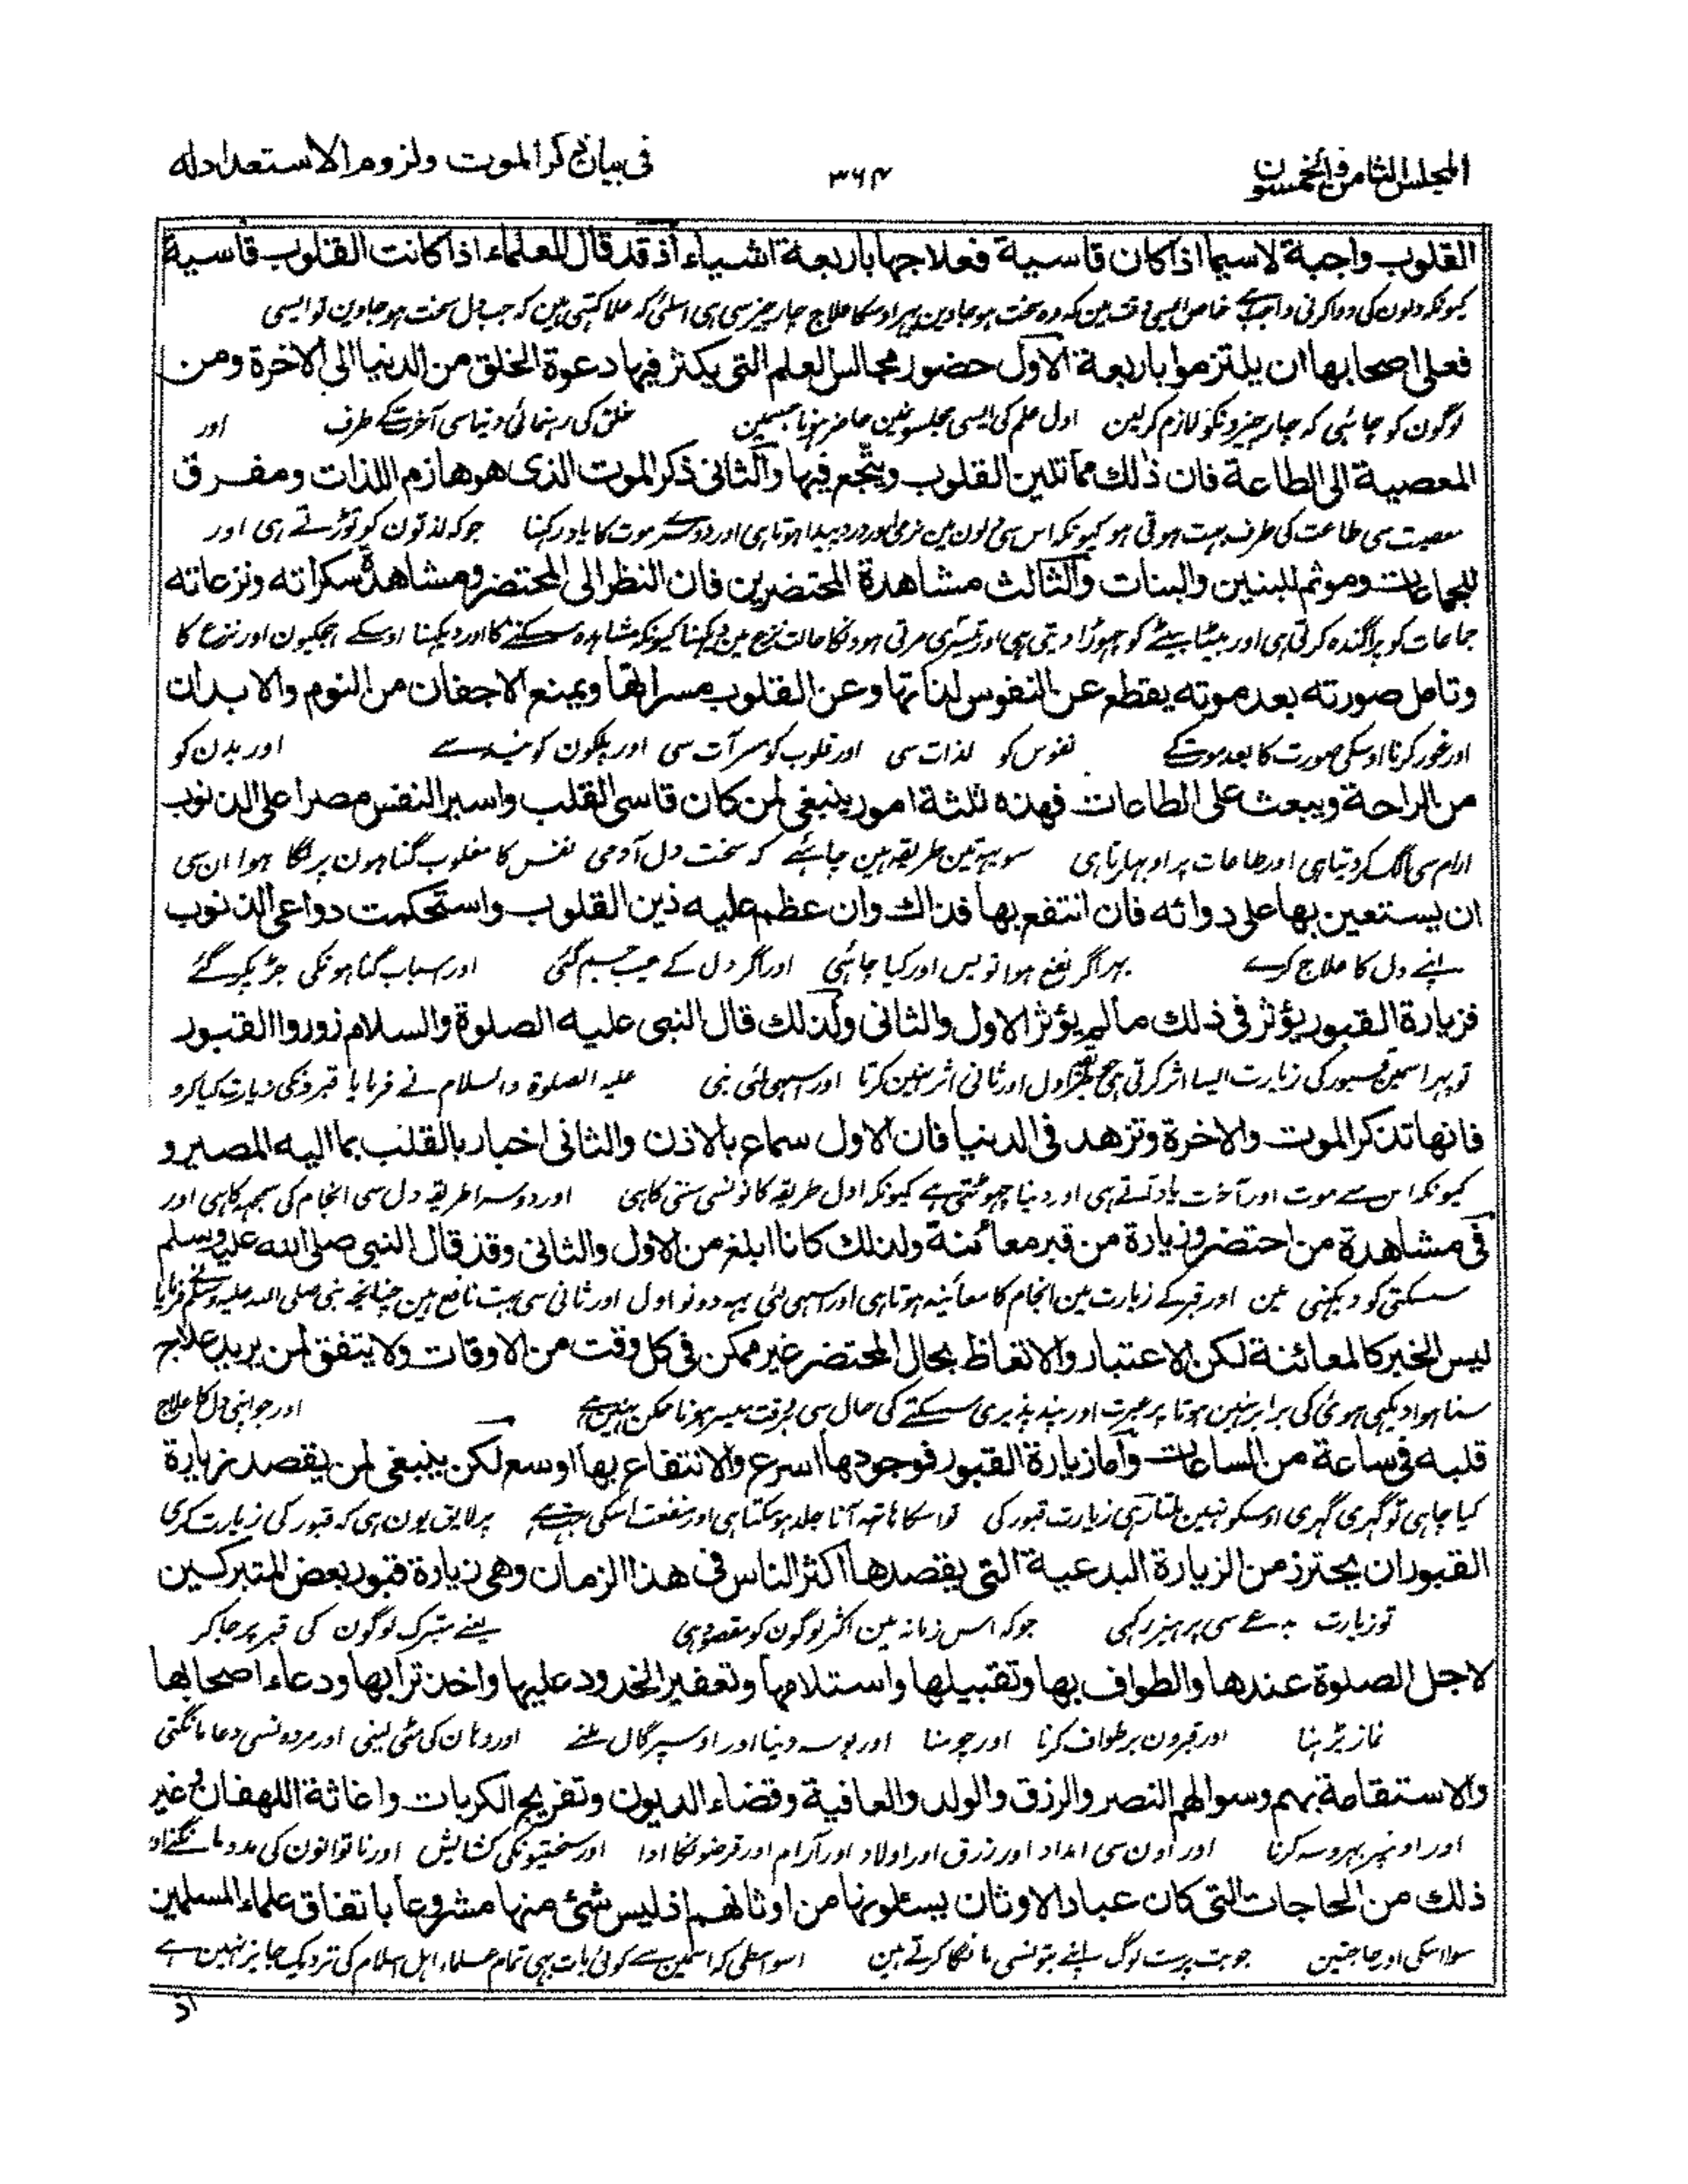 المجلس الثامن والخمسون
۳۶۴
فی بیان ذکر الموت ولزوم الاستعداد له
القلوب واجبة لاسیما اذا کان قاسیة فعلاجها باربعة اشیاء اذ قد قال العلماء اذا کانت القلوب قاسیة
کیونکہ دلون کی دوا کرنی واجب ہے خاص ایسی وقت مین کہ وہ سخت ہو جاوین پہر اوسکا علاج چار چیز سی ہی اسلئی کہ علما کہتی ہین کہ جب دل سخت ہو جاوین تو ایسی
فعلی اصحابها ان یلتزموا باربعة الاول حضور مجالس العلم التی یکثر فیها دعوة الخلق من الدنیا الی الاخرة ومن
لوگون کو چاہئی کہ چار چیزونکو لازم کر لین اول علم کی ایسی مجلسونمین حاضر ہونا جسمین خلق کی رہنمائی دنیا سی آخرت کے طرف اور
المعصیة الی الطاعة فان ذلك مما تلین القلوب وینجع فیها والثانی ذکر الموت الذی هو هازم اللذات ومفرق
معصیت سی طاعت کی طرف بہت ہوتی ہو کیونکہ اس سی دلون مین نرمی اور درد پیدا ہوتا ہی اور دوسرے موت کا یاد رکہنا جو کہ لذتون کو توڑتے ہی اور
الجماعات وموثم البنین والبنات والثالث مشاهدة المحتضرین فان النظر الی المحتضر ومشاهدة سکراته ونزعاته
جماعات کو پراگندہ کرتی ہی اور بیٹا بیٹے کو چہوڑا دیتی ہی اور تیسری مرتی ہوونکا حالت نزع مین دیکہنا کیونکہ مشاہدہ سکتے کا اور دیکہنا اوسکے ہچکیون اور نزع کا
وتامل صورته بعد موته یقطع عن النفوس لذاتها وعن القلوب مسراتها ویمنع الاجفان من النوم والابدان
اور غور کرنا اوسکی صورت کا بعد موت کے نفوس کو لذات سی اور قلوب کو مسرآت سی اور پلکون کو نیند سے اور بدن کو
من الراحة ویبعث علی الطاعات فهذه ثلثة امور ینبغی لمن کان قاسی القلب واسیر النفس مصرا علی الذنوب
ارام سی الگ کر دیتا ہی اور طاعات پر اوبہارتا ہی سو یہہ تین طریقہ ہین چاہئے کہ سخت دل آدمی نفس کا مغلوب گناہون پر لگا ہوا ان سی
ان یستعین بها علی دوائه فان انتفع بها فذاك وان عظم علیه ذین القلوب واستحکمت دواعی الذنوب
اپنے دل کا علاج کرے پہر اگر نفع ہوا تو بس اور کیا چاہئی اور اگر دل کے عیب جم گئی اور اسباب گناہونکی جڑ پکڑ گئے
فزیارة القبور یؤثر فی ذلك ما لم یؤثر الاول والثانی ولذلك قال النبی علیه الصلوة والسلام زوروا القبور
تو پہر اسمین قبور کی زیارت ایسا اثر کرتی ہی اول اور ثانی اثر نہین کرتا اور اسی لئی نبی علیہ الصلوة والسلام نے فرمایا قبرونکی زیارت کیا کرو
فانها تذکر الموت والاخرة وتزهد فی الدنیا فان الاول سماع بالاذن والثانی اخبار بالقلب بما الیه المصیر و
کیونکہ اس سے موت اور آخرت یاد آتے ہی اور دنیا چہوٹتی ہے کیونکہ اول طریقہ کانونسی سنی کا ہی اور دوسرا طریقہ دل سی انجام کی سمجہہ کا ہی اور
فی مشاهدة من احتضر وزیارة من قبر معائنة ولذلك کانا ابلغ من الاول والثانی وقد قال النبی صلی الله علیه وسلم
سسکتی کو دیکہنی مین اور قبر کے زیارت مین انجام کا معائنہ ہوتا ہی اور اسی لئی یہہ دونو اول اور ثانی سی بہت نافع ہین چنانچہ نبی صلی اللہ علیہ وسلم فرمایا
لیس الخبر کالمعائنة لکن الاعتبار والاتعاظ بحال المحتضر غیر ممکن فی کل وقت من الاوقات ولا یتفق لمن یرید علاج
سنا ہوا دیکہی ہوئی کی برابر نہین ہوتا پر عبرت اور پند پذیری سسکتے کی حال سی ہر وقت میسر ہونا ممکن نہین ہے اور جو اپنی دل کا علاج
قلبه فی ساعة من الساعات واما زیارة القبور فوجودها اسرع والانتفاع بها اوسع لکن ینبغی لمن یقصد زیارة
کیا چاہی تو گہری گہری اوسکو نہین ملتا رہی زیارت قبور کی تو اسکا ہاتہہ آنا جلد ہو سکتا ہی اور منفعت اسکی بہت ہے پر لایق یون ہی کہ قبور کی زیارت کری
القبور ان یحترز من الزیارة البدعیة التی یقصدها اکثر الناس فی هذا الزمان وهی زیارة قبور بعض المتبرکین
تو زیارت بدعے سی پرہیز رکہی جو کہ اس زمانہ مین اکثر لوگون کو مقصود ہی یعنے متبرک لوگون کی قبر پر جا کر
لاجل الصلوة عندها والطواف بها وتقبیلها واستلامها وتعفیر الخدود علیها واخذ ترابها ودعاء اصحابها
نماز پڑہنا اور قبرون پر طواف کرنا اور چومنا اور بوسہ دینا اور اوسپر گال ملنے اور وہان کی مٹی لینی اور مردونسی دعا مانگتی
والاستقامة بهم وسوالهم النصر والرزق والولد والعافیة وقضاء الدیون وتفریج الکربات واغاثة اللهفان وغیر
اور اونپر بہروسہ کرنا اور اون سی امداد اور رزق اور اولاد اور آرام اور قرضونکا ادا اور سختیونکی کشایش اور ناتوانون کی مدد مانگنا و
ذلك من الحاجات التی کان عباد الاوثان یسئلونها من اوثانهم اذ لیس شئ منها مشروعا باتفاق علماء المسلمین
سوا اسکی اور حاجتین جو بت پرست لوگ اپنے بتونسی مانگا کرتے ہین اسواسطی کہ اسمین سے کوئی بات بہی تمام علماء اہل اسلام کی نزدیک جایز نہین ہے
اذ